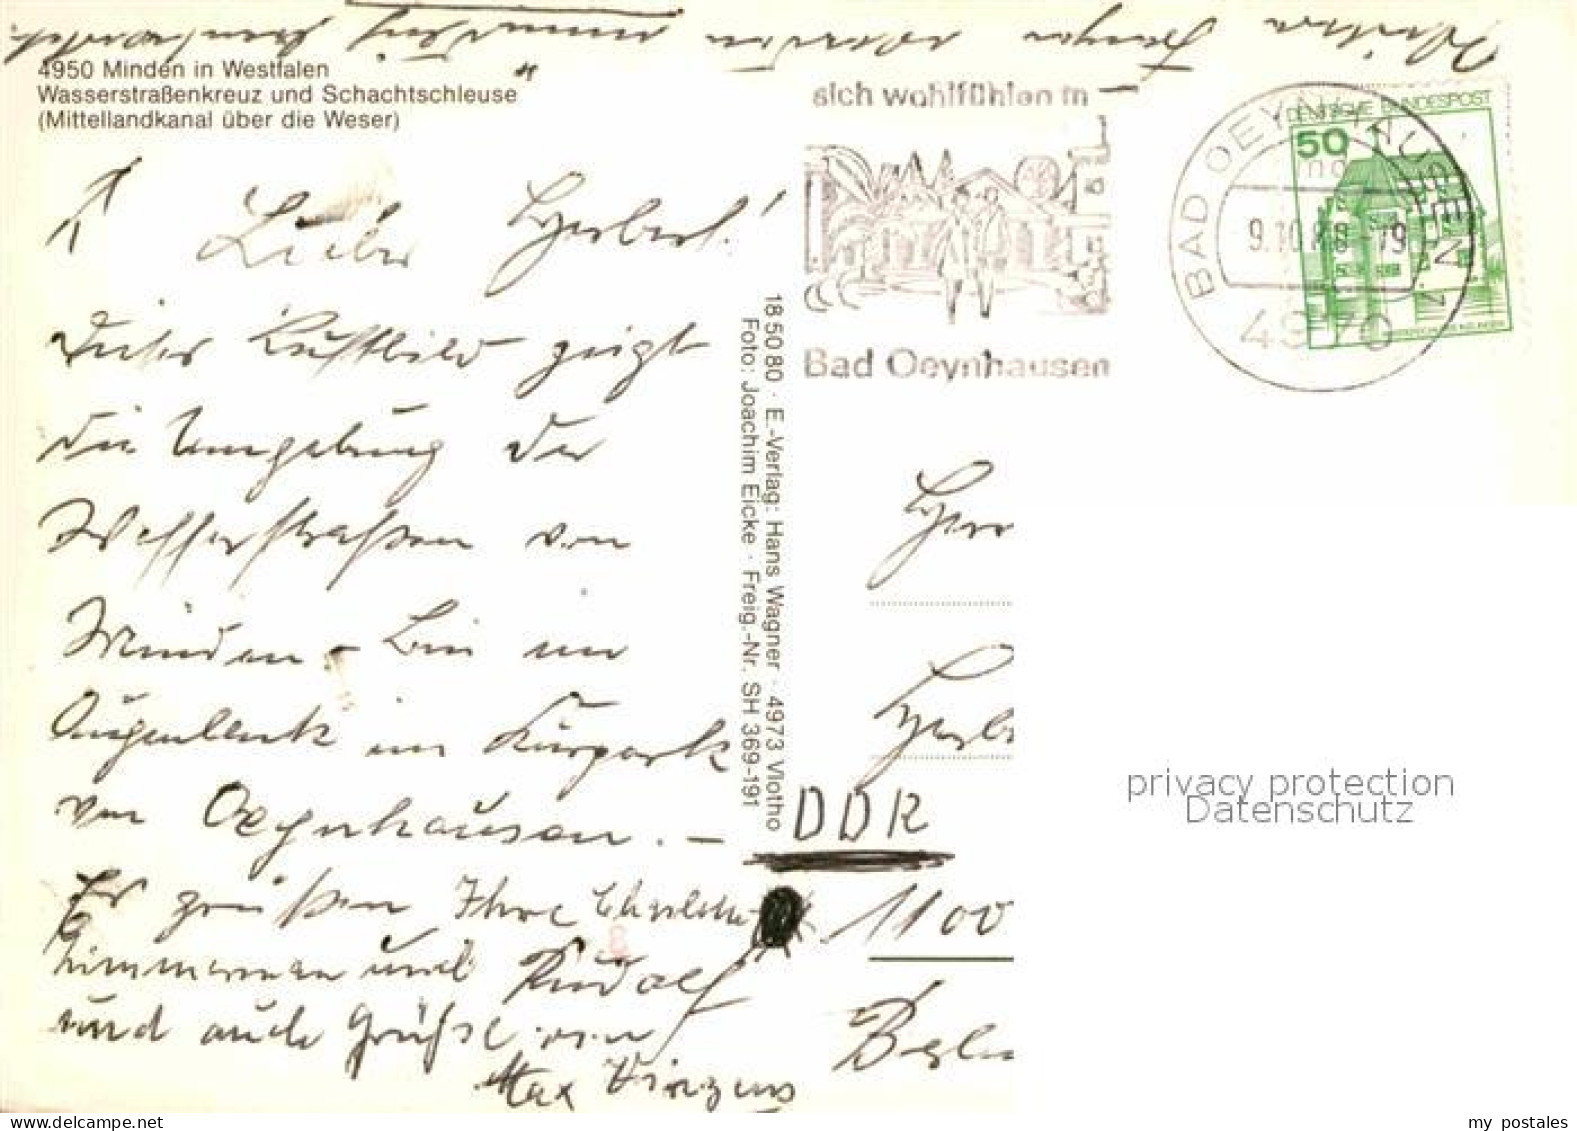 Weitere Fragen werden mündlich beantwortet.
4950 Minden in Westfalen
Wasserstraßenkreuz und Schachtschleuse
(Mittellandkanal über die Weser)
Lieber Herbert!
Dieses Luftbild zeigt
die Umgebung der
Wasserstraßen von
Minden – Bin im
Augenblick im Kurpark
von Oeynhausen. –
Es grüßen Ihre
Zimmermann und Rudolf
und auch Grüße von
Max
18 50 80 · E.-Verlag: Hans Wagner · 4973 Vlotho
Foto: Joachim Eicke · Freig.-Nr. SH 369-191
sich wohlfühlen in
Bad Oeynhausen
BAD OEYNHAUSEN 1
9.10.88-19
4970
DEUTSCHE BUNDESPOST
50
Herrn
Herb
DDR
1100
Berlin
privacy protection
Datenschutz
my postales